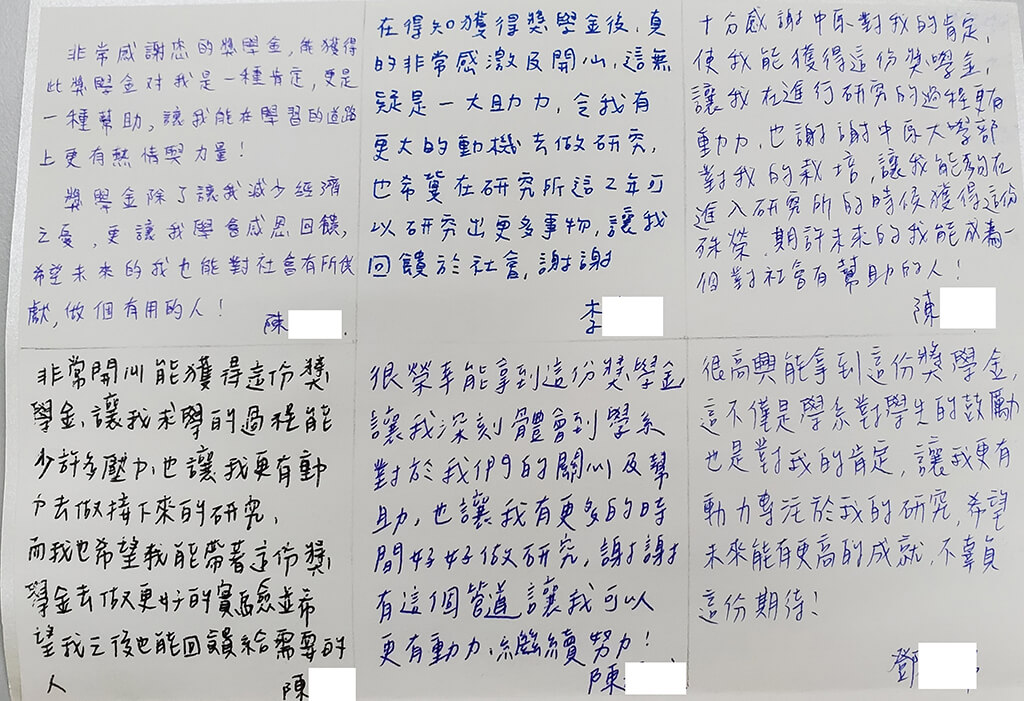 非常感謝您的獎學金,能獲得
此獎學金对我是一種肯定,更是
一種幫助,讓我能在學習的道路
上更有熱情與力量!
獎學金除了讓我減少經濟
之憂,更讓我學會感恩回饋,
希望未來的我也能對社會有所貢
獻,做個有用的人!
陳
在得知獲得獎學金後,真
的非常感激及開心,這無
疑是一大助力,令我有
更大的動機去做研究,
也希冀在研究所這2年可
以研究出更多事物,讓我
回饋於社會,謝謝
李
十分感謝中原對我的肯定,
使我能獲得這份獎學金,
讓我在進行研究的過程更有
動力,也謝謝中原大學部
對我的栽培,讓我能夠在
進入研究所的時候獲得這份
殊榮,期許未來的我能成為一
個對社會有幫助的人!
陳
非常開心能獲得這份獎
學金,讓我求學的過程能
少許多壓力,也讓我更有動
力去做接下來的研究,
而我也希望我能帶著這份獎
學金去做更好的實驗並希
望我之後也能回饋給需要的
人
陳
很榮幸能拿到這份獎學金
讓我深刻體會到學系
對於我們的關心及幫
助,也讓我有更多的時
間好好做研究,謝謝
有這個管道讓我可以
更有動力,繼續努力!
陳
很高興能拿到這份獎學金,
這不僅是學系對學生的鼓勵
也是對我的肯定,讓我更有
動力專注於我的研究,希望
未來能有更高的成就,不辜負
這份期待!
鄧